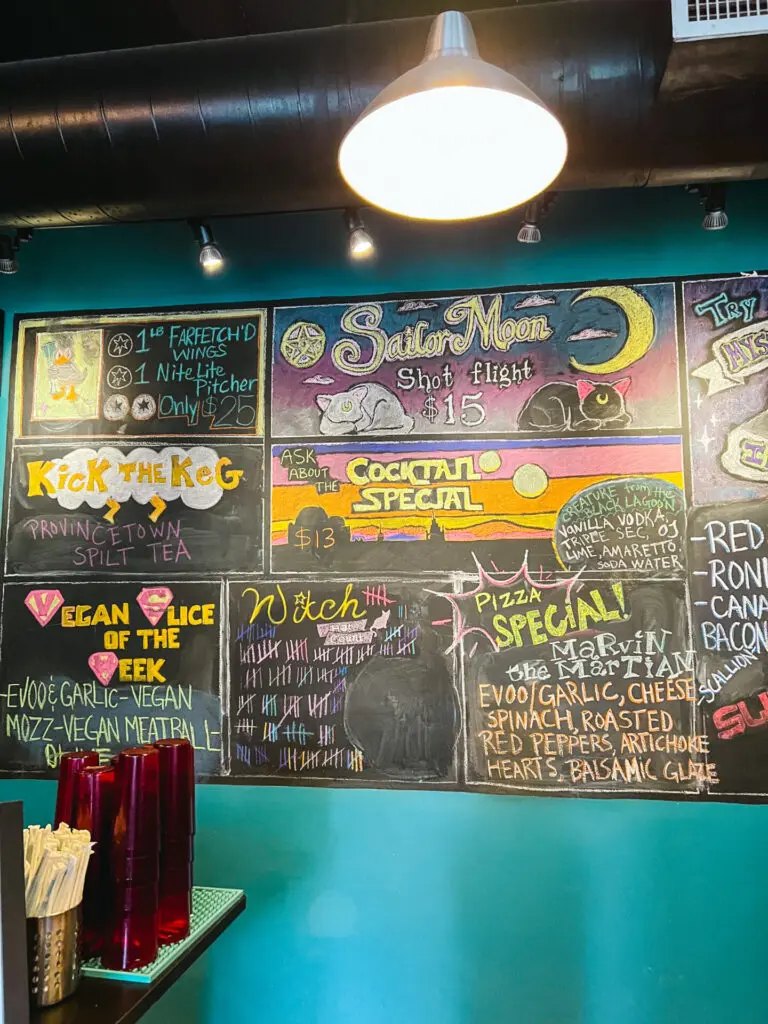 1LB FARFETCH'D
WINGS
1 Nite Lite
Pitcher
Only $25
Sailor Moon
Shot flight
$15
TRY
KICK THE KEG
PROVINCETOWN
SPILT TEA
ASK
ABOUT
THE
COCKTAIL
SPECIAL
$13
CREATURE from the
BLACK LAGOON
VANILLA VODKA,
TRIPLE SEC, OJ
LIME, AMARETTO,
SODA WATER
VEGAN SLICE
OF THE
WEEK
-EVOO & GARLIC-VEGAN
MOZZ-VEGAN MEATBALL-
Witch
COUNT
PIZZA
SPECIAL!
MARVIN
the MARTIAN
EVOO/GARLIC, CHEESE,
SPINACH, ROASTED
RED PEPPERS, ARTICHOKE
HEARTS, BALSAMIC GLAZE
-RED
-RONI
-CANA
BACON
-SCALLION